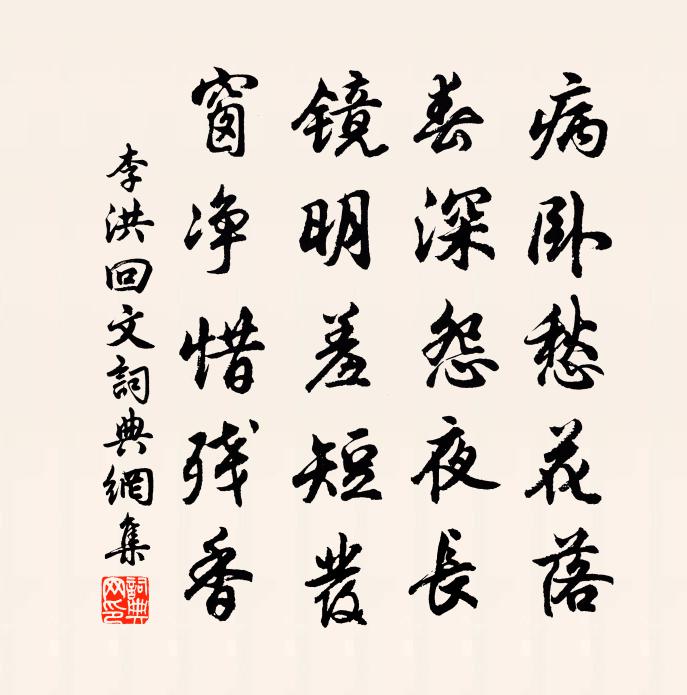 病卧愁花落
春深怨夜長
镜明羞短發
窗净惜残香
李洪回文詞典網集
詞典
网印